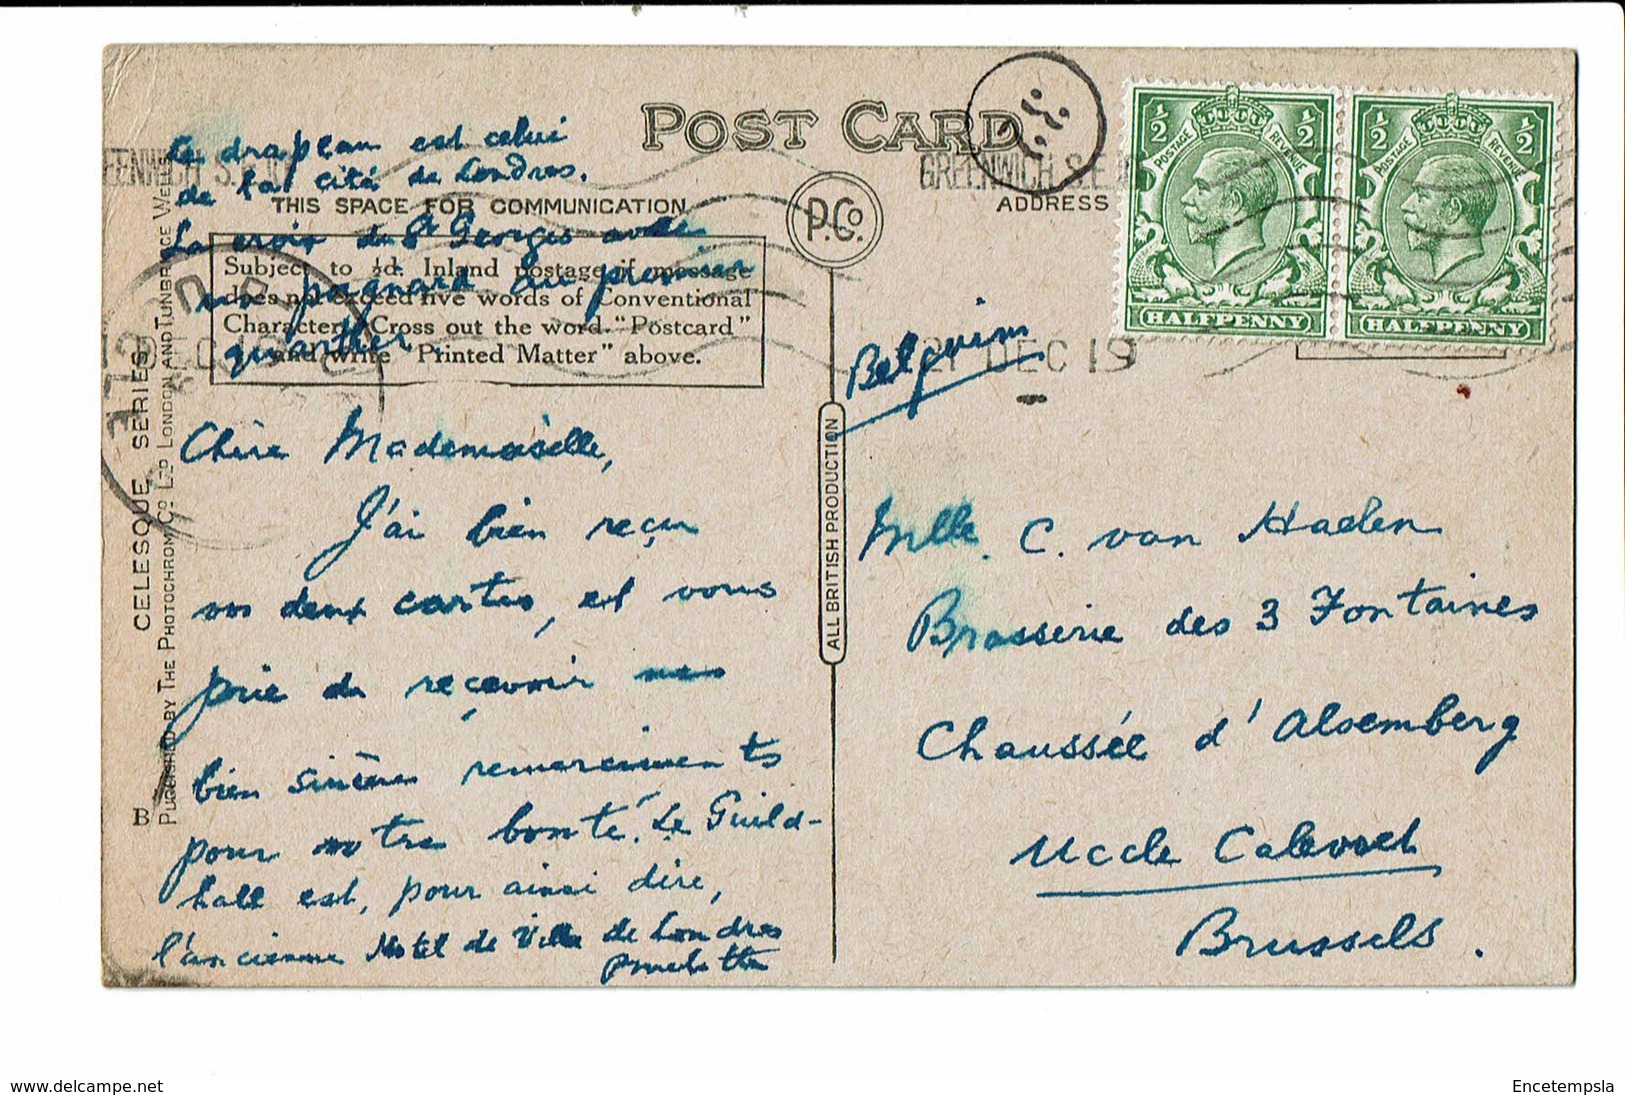 POST CARD
THIS SPACE FOR COMMUNICATION
ADDRESS
P.Co.
Subject to ½d. Inland postage if message
does not exceed five words of Conventional
Character. Cross out the word "Postcard"
and write "Printed Matter" above.
Le drapeau est celui
de la cité de Londres.
La croix de St Georges avec
un poignard au premier
quartier
Chère Mademoiselle,
J'ai bien reçu
vos deux cartes, et vous
prie de reçevoir mes
bien sincères remerciements
pour votre bonté. Le Guild-
hall est, pour ainsi dire,
l'ancienne Hotel de Ville de Londres
CELESQUE SERIES
PUBLISHED BY THE PHOTOCHROM CO. LTD LONDON AND TUNBRIDGE WELLS
B
ALL BRITISH PRODUCTION
GREENWICH S.E.
21 DEC 19
½ ½
POSTAGE REVENUE
HALFPENNY
½ ½
POSTAGE REVENUE
HALFPENNY
Belgium
Mlle. C. van Haelen
Brasserie des 3 Fontaines
Chaussée d'Alsemberg
Uccle Calevoet
Brussels.
www.delcampe.net
Encetempsla